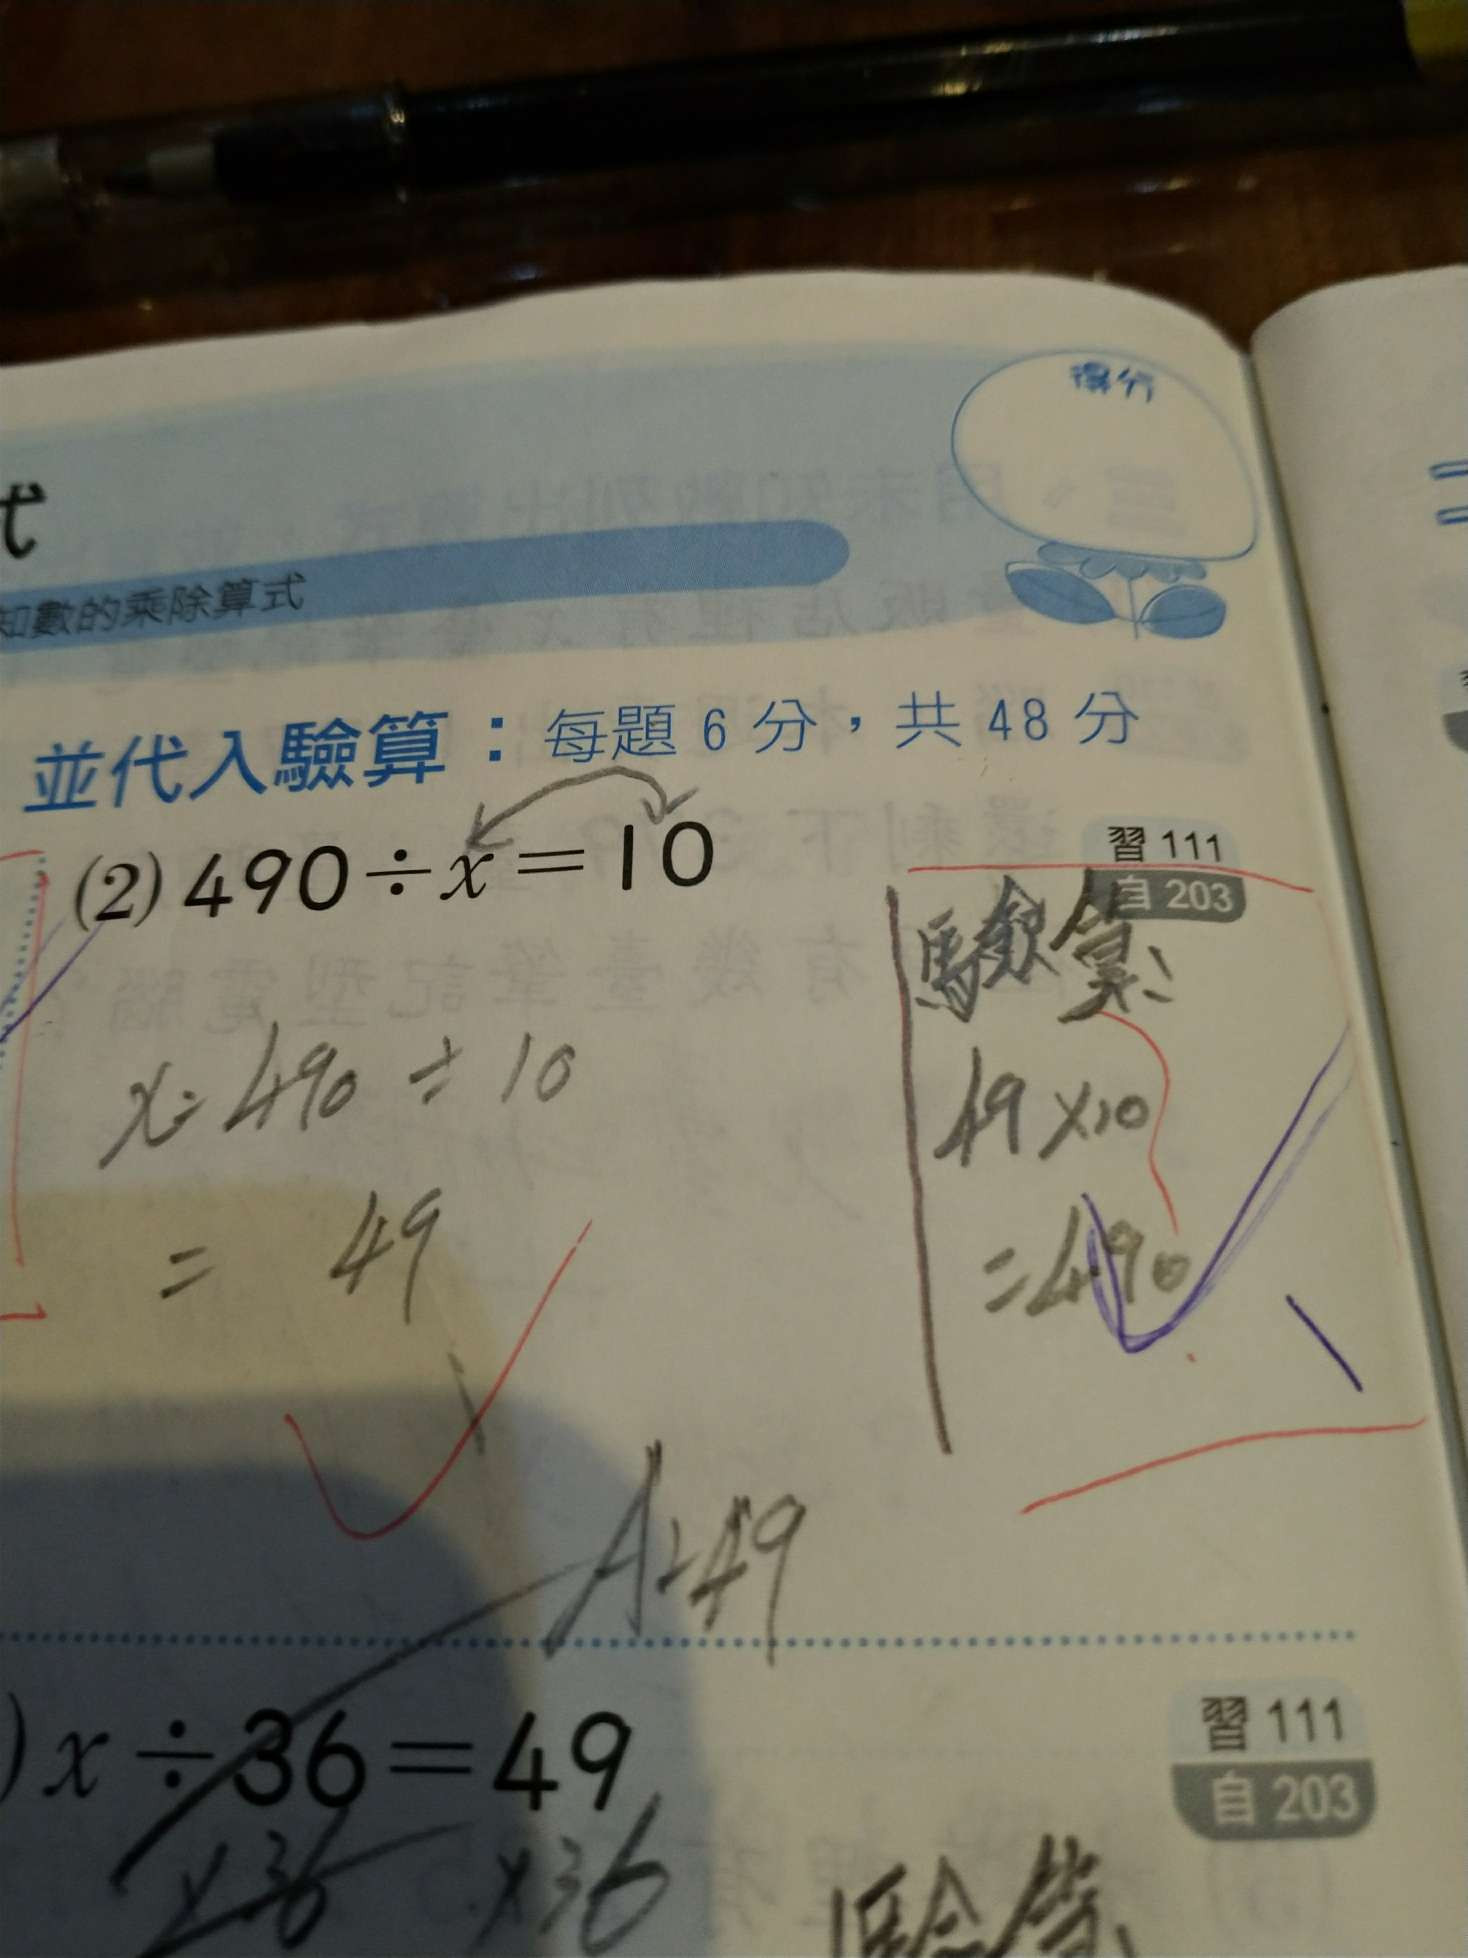 得分
式
知數的乘除算式
並代入驗算：每題 6 分，共 48 分
(2) 490÷x=10
習 111
自 203
驗算：
x=490÷10
49×10
=49
=490
A：49
) x÷36=49
習 111
自 203
×36 ×36
驗算：